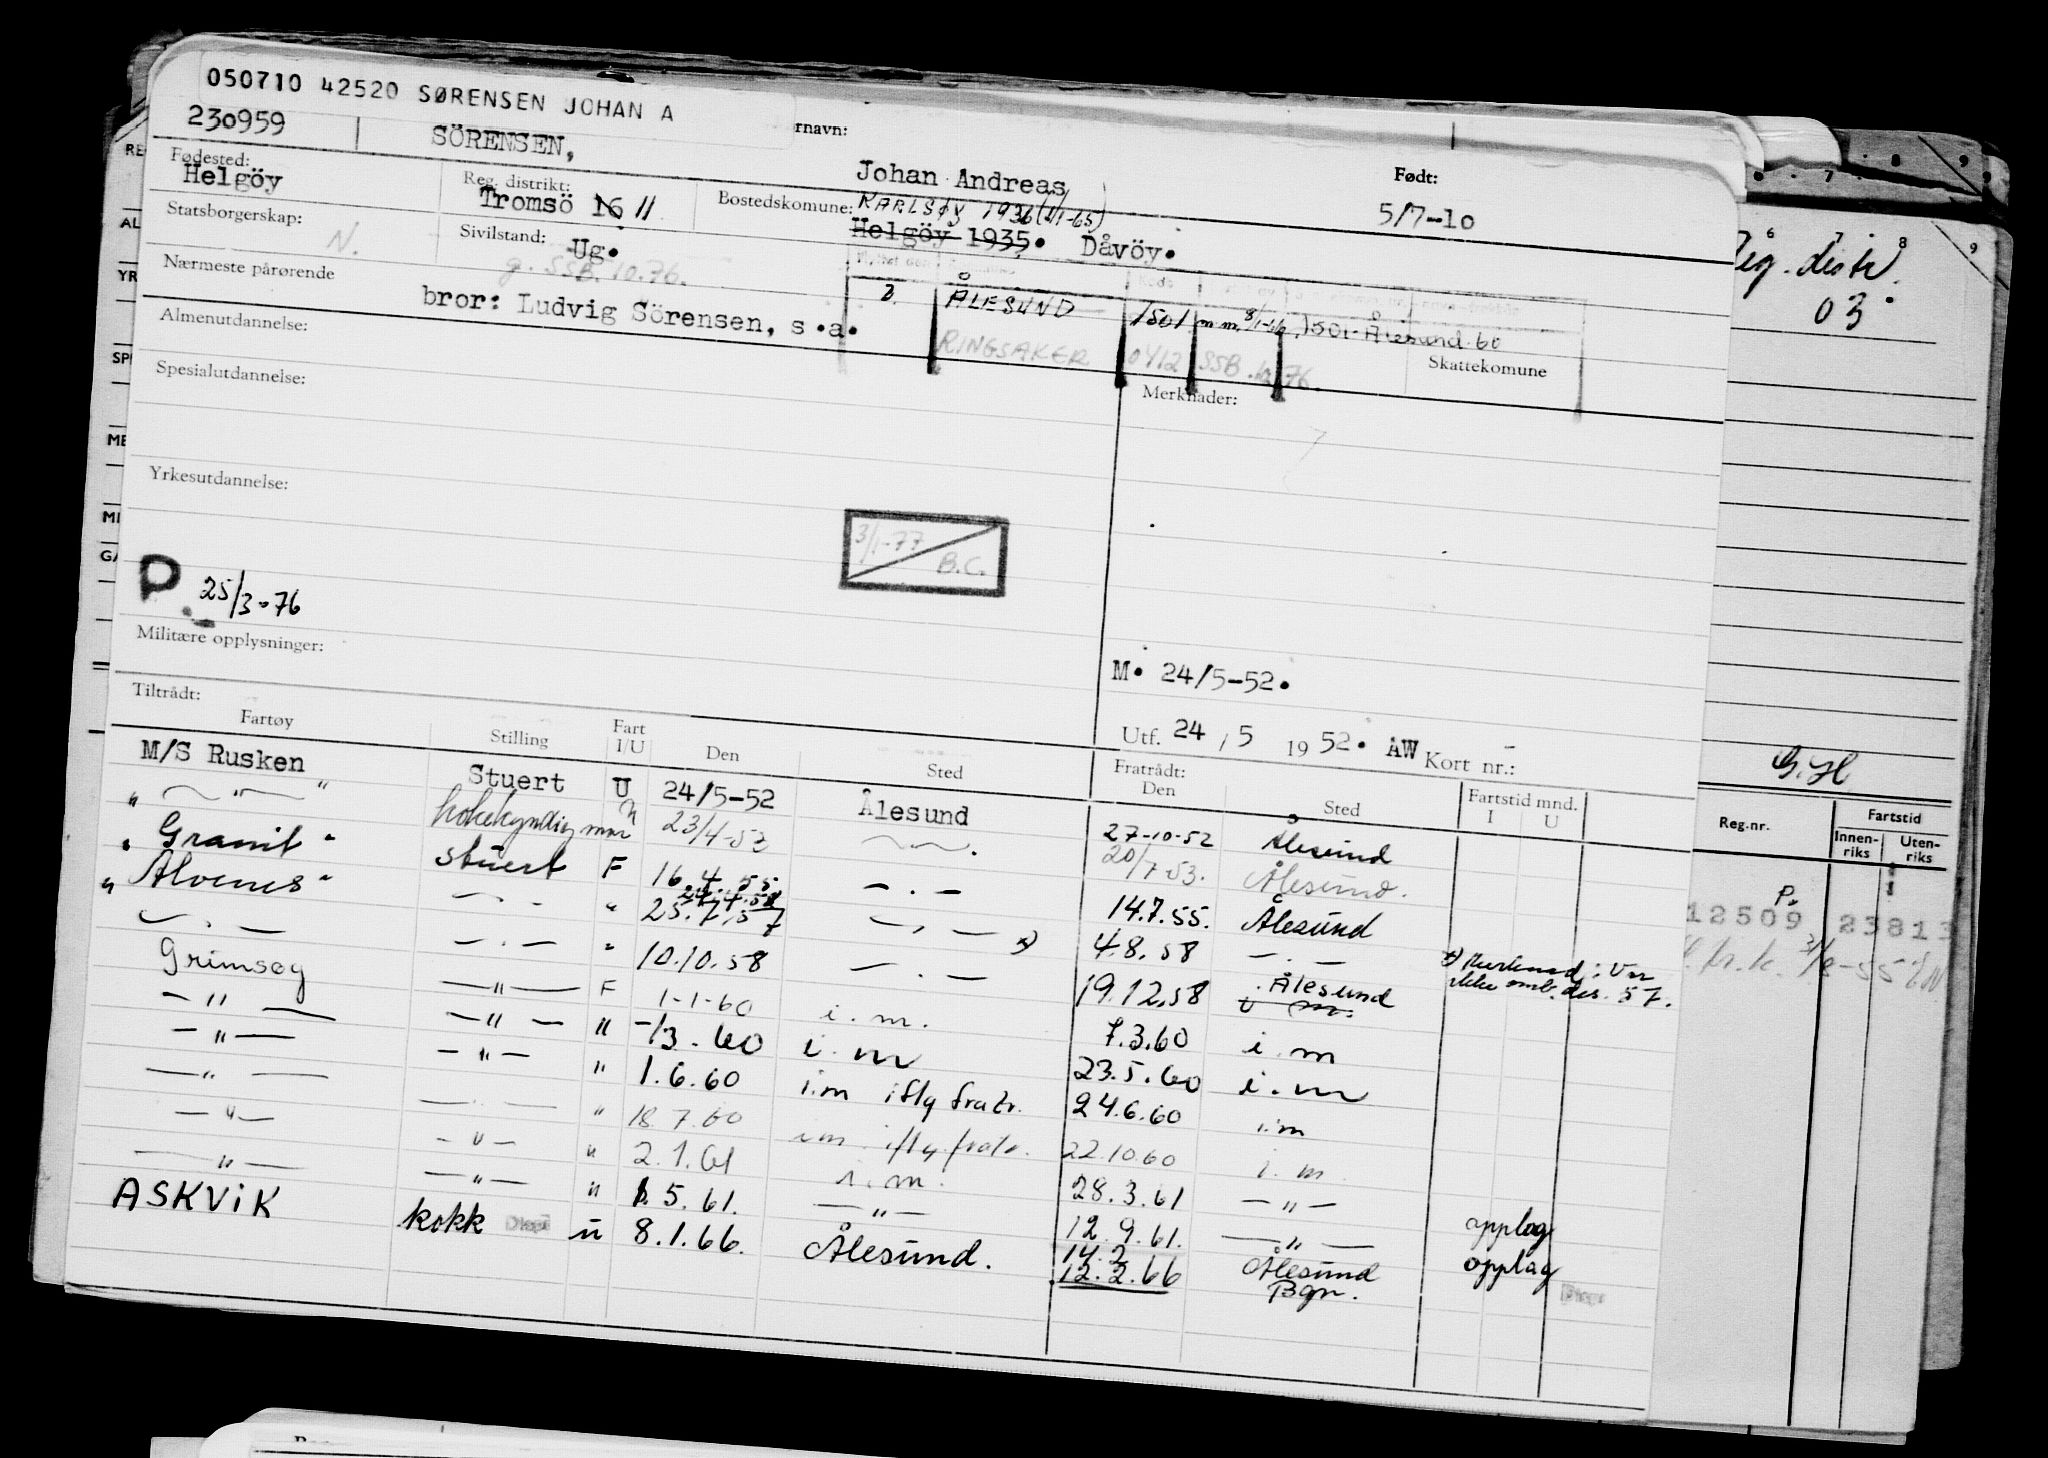 050710 42520 SØRENSEN JOHAN A
230959
SÖRENSEN,
rnavn:
Johan Andreas
Født:
5/7-10
Fødested:
Helgöy
Reg. distrikt:
Tromsö 16 11
Bostedskomune:
KARLSØY 1936 (1/1-65)
Helgöy 1935. Dåvöy.
Statsborgerskap:
N.
Sivilstand:
Ug.
g. SSB. 10.76.
Nærmeste pårørende
bror: Ludvig Sörensen, s.a.
ÅLESUND 1501 m.m. 8/1-66 1501 Ålesund 60
RINGSAKER 0412 SSB 76.
Skattekomune
Almenutdannelse:
Spesialutdannelse:
Merknader:
Yrkesutdannelse:
3/1-77 B.C.
P. 25/3-76
Militære opplysninger:
M. 24/5-52.
Utf. 24 / 5 1952. AW Kort nr.:
Tiltrådt:
Fartøy Stilling Fart I/U Den Sted
Fratrådt: Den Sted Fartstid mnd. I U
M/S Rusken Stuert U 24/5-52 Ålesund 27-10-52 Ålesund
" — " — " kokekyndig mm " 23/4-53 — . — . 20/7 53. Ålesund.
" Granit " stuert F 16.4.55 — . — 14.7.55. Ålesund
" Alvenes " — . — " 25.7.57 24.4.58 — . — x) 4.8.58 — . —
x) Merknad: Var ikke omb. des. 57.
— . — — . — " 10.10.58 — . — 19.12.58 Ålesund
Grimsøy — " — F 1-1-60 i.m. 7.3.60 i.m
— " — — " — " -/3-60 i.m 23.5.60 i.m
— " — — " — " 1.6.60 i.m iflg fratr. 24.6.60 i.m
— " — — . — " 18.7.60 i.m. iflg fratr. 22.10.60 i.m
— " — — " — " 2.1.61 i.m. 28.3.61 — " —
— " — — " — " 1.5.61. — " — 12.9.61. — " — opplag
ASKVIK kokk u 8.1.66. Ålesund. 14.2 12.2.66 Ålesund Bgn. opplag
Reg. distr.
03.
G.H.
Reg.nr.
Fartstid
Innen-riks
Uten-riks
P.
12509 23813